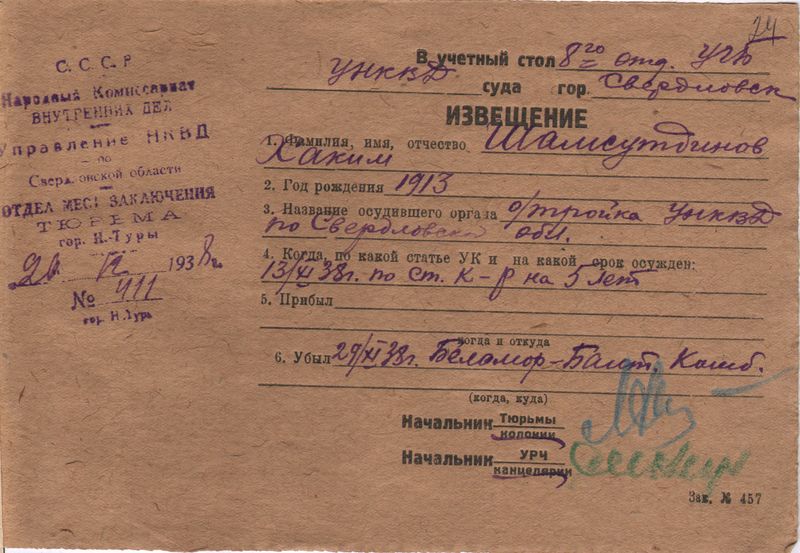 24
С. С. С. Р
Народный Комиссариат
ВНУТРЕННИХ ДЕЛ
Управление НКВД
по
Свердловской области
ОТДЕЛ МЕСТ ЗАКЛЮЧЕНИЯ
ТЮРЬМА
гор. Н.-Туры
1938 г.
№ 411
гор. Н.Тура
В учетный стол 8го отд. УГБ
УНКВД суда гор. Свердловск
ИЗВЕЩЕНИЕ
1. Фамилия, имя, отчество Шамсутдинов
Хаким
2. Год рождения 1913
3. Название осудившего органа о/тройка УНКВД
по Свердловской обл.
4. Когда, по какой статье УК и на какой срок осужден:
13/XI 38г. по ст. К-Р на 5 лет
5. Прибыл
когда и откуда
6. Убыл 29/XI 38г. Беломор-Балт. Комб.
(когда, куда)
Начальник Тюрьмы
колонии
Начальник УРЧ
канцелярии
Зак. № 457